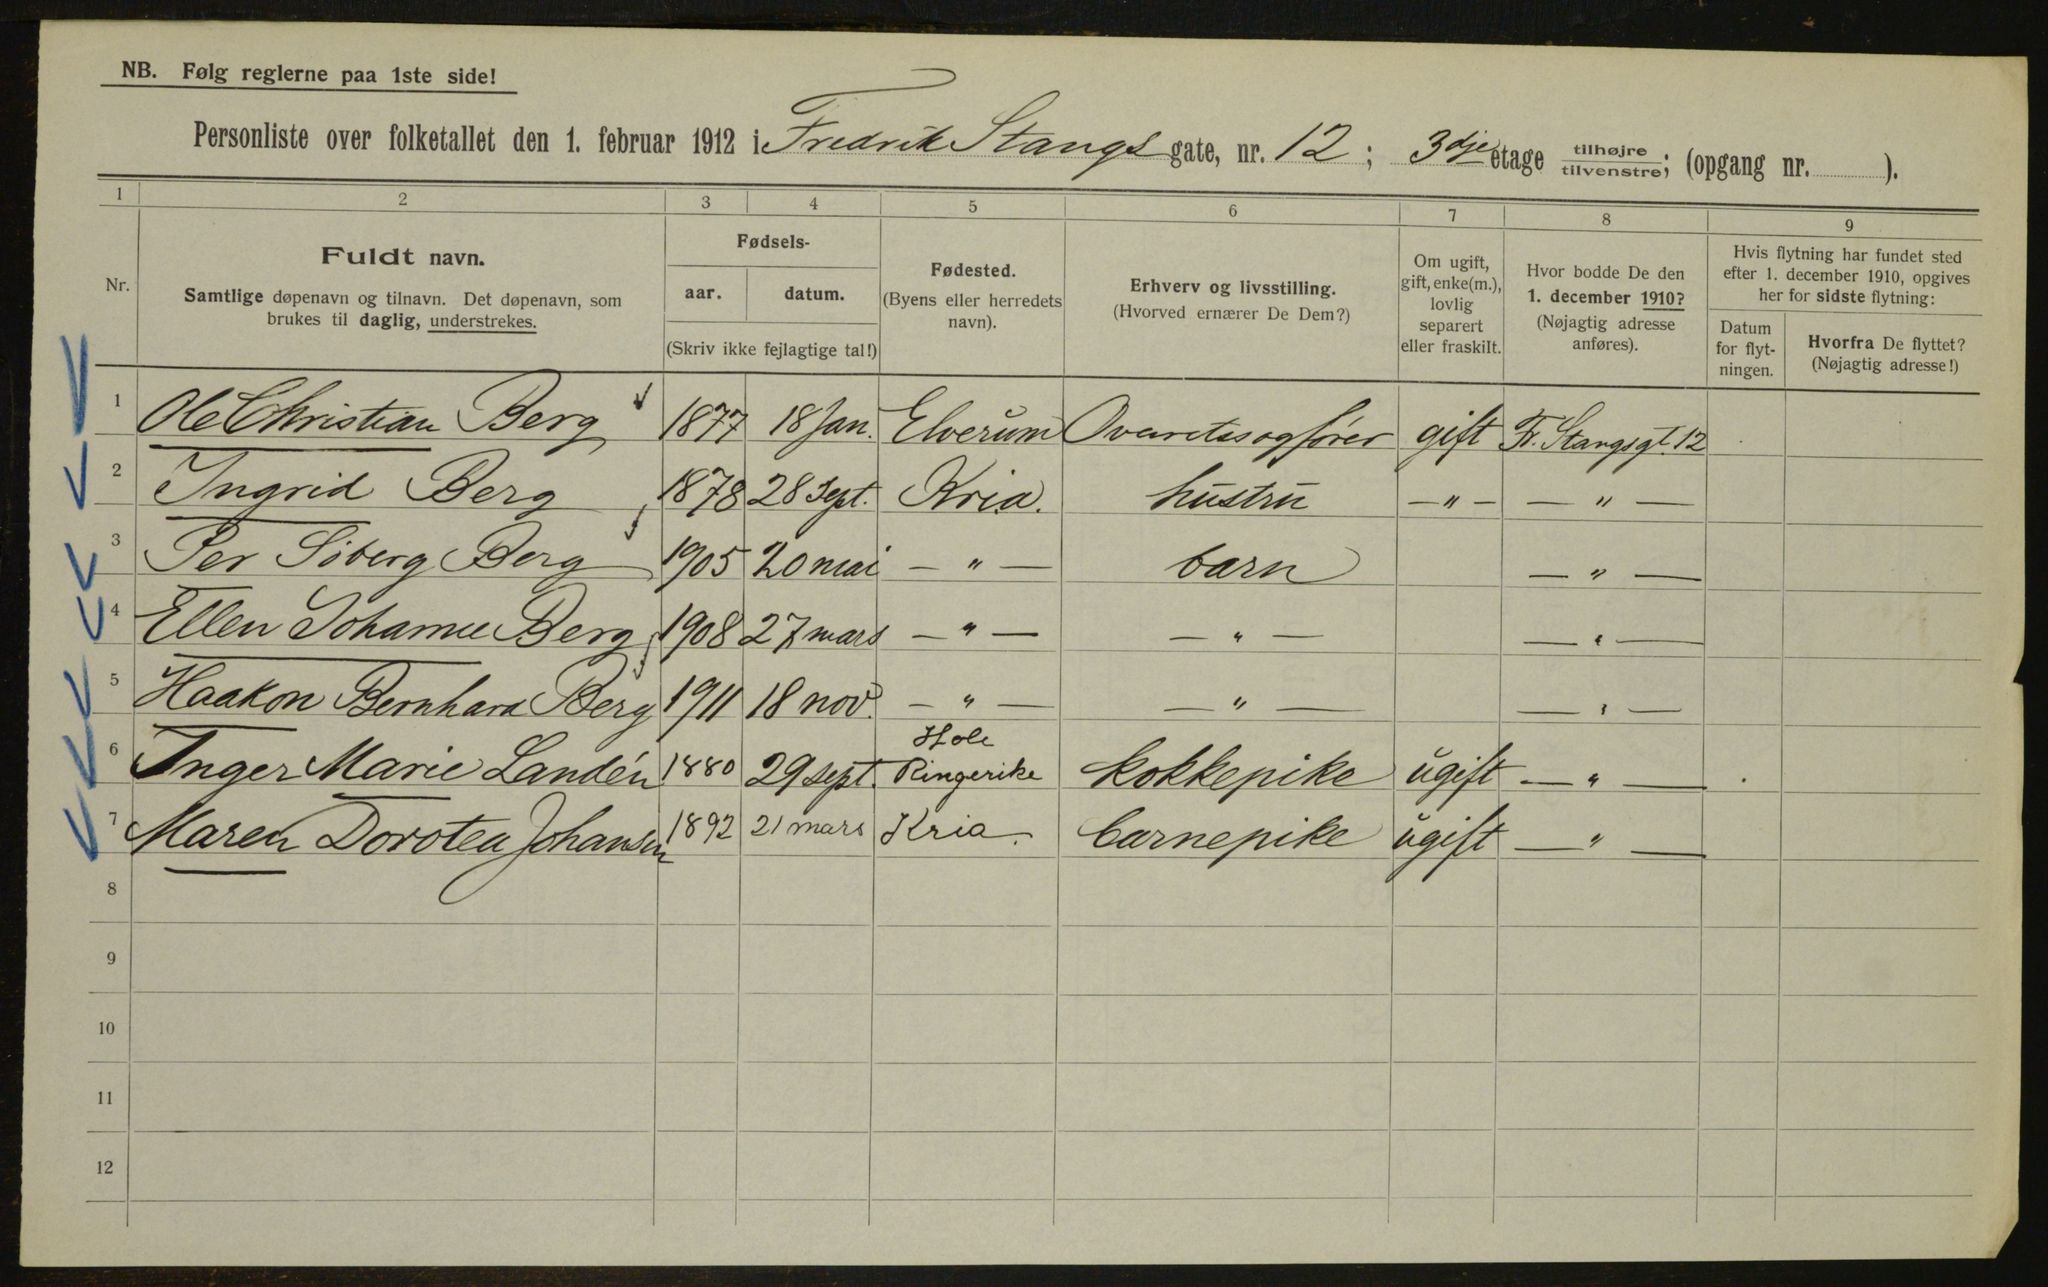 NB. Følg reglerne paa 1ste side!
Personliste over folketallet den 1. februar 1912 i Fredrik Stangs gate, nr. 12; 3dje etage tilhøjre/tilvenstre; (opgang nr. ).
1 2 3 4 5 6 7 8 9
Nr.
Fuldt navn.
Samtlige døpenavn og tilnavn. Det døpenavn, som
brukes til daglig, understrekes.
Fødsels-
aar. datum.
(Skriv ikke fejlagtige tal!)
Fødested.
(Byens eller herredets
navn).
Erhverv og livsstilling.
(Hvorved ernærer De Dem?)
Om ugift,
gift, enke(m.),
lovlig
separert
eller fraskilt.
Hvor bodde De den
1. december 1910?
(Nøjagtig adresse
anføres).
Hvis flytning har fundet sted
efter 1. december 1910, opgives
her for sidste flytning:
Datum
for flyt-
ningen.
Hvorfra De flyttet?
(Nøjagtig adresse!)
1 Ole Christian Berg 1877 18 Jan. Elverum Overretssagfører gift Fr. Stangsgt. 12
2 Ingrid Berg 1878 28 sept. Kria. hustru — " — — " —
3 Per Siberg Berg 1905 20 mai — " — barn — " —
4 Ellen Johanne Berg 1908 27 mars — " — — " — — " —
5 Haakon Bernhard Berg 1911 18 nov. — " — — " — — " —
6 Inger Marie Landén 1880 29 sept. Hole Ringerike kokkepike ugift — " —
7 Maren Dorotea Johansen 1892 21 mars Kria. barnepike ugift — " —
8
9
10
11
12